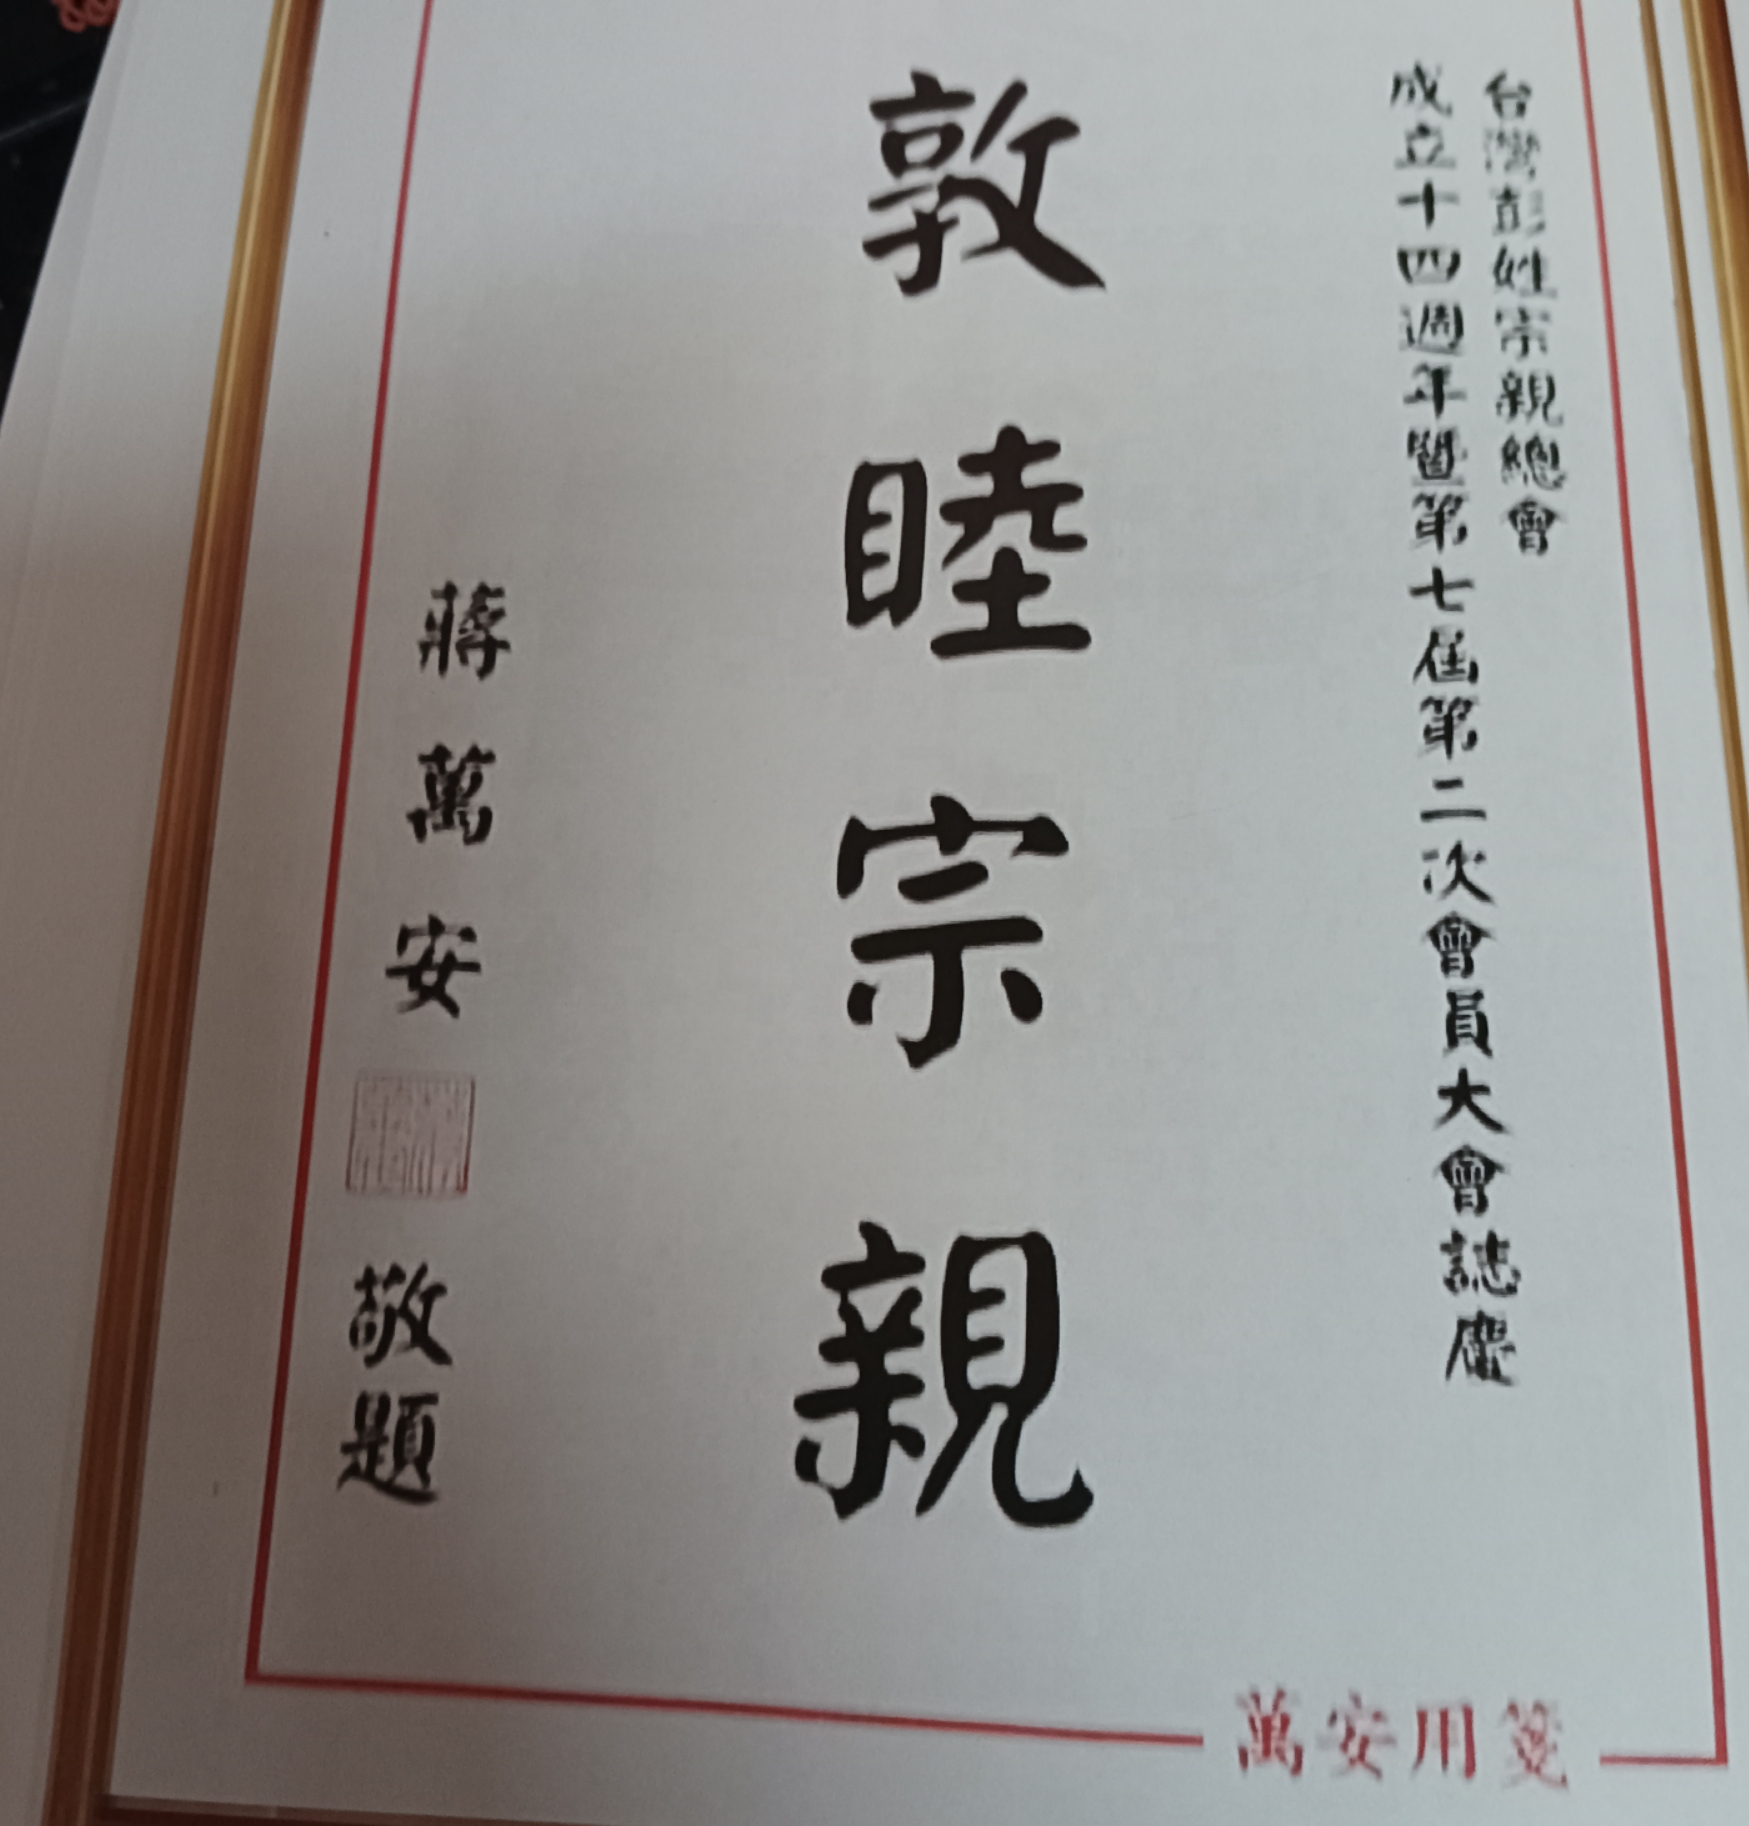 台灣彭姓宗親總會
成立十四週年暨第七屆第二次會員大會誌慶
敦睦宗親
蔣萬安 敬題
萬安用箋